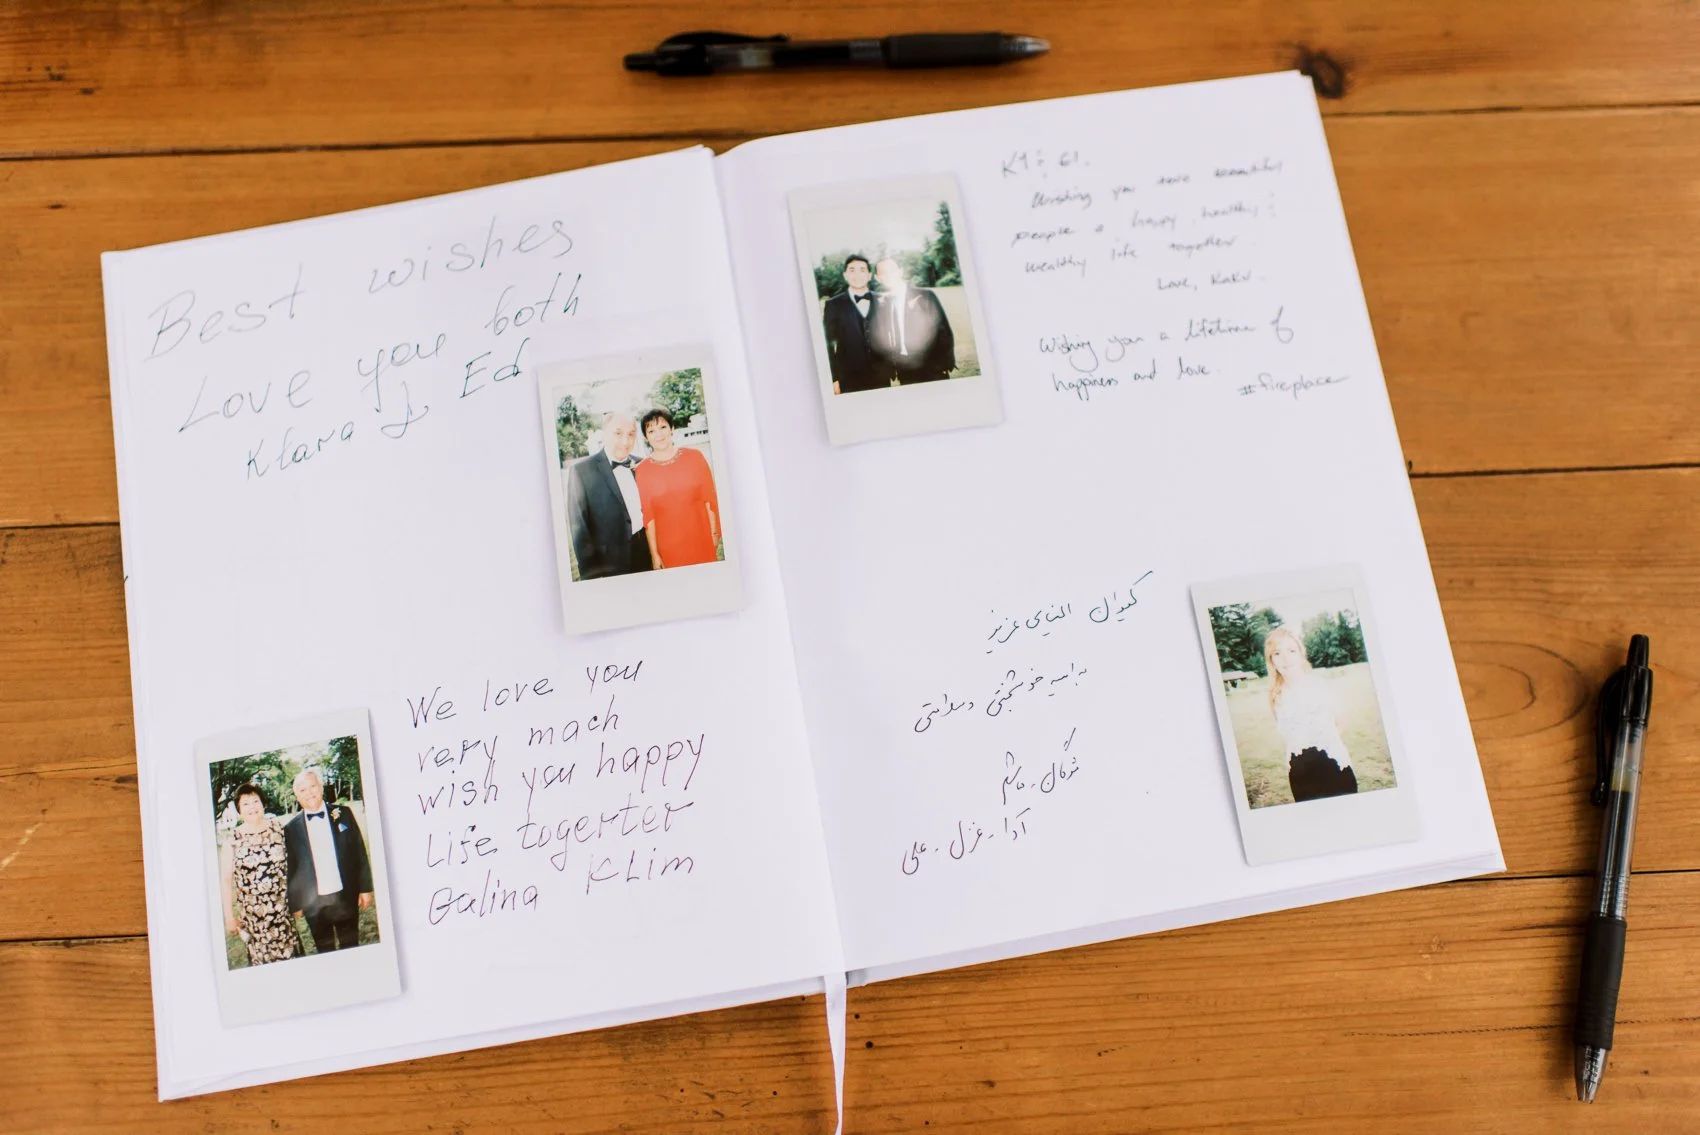 Best wishes
Love you both
Klara & Ed
We love you
very mach
wish you happy
Life togerter
Galina KLim
Wishing you two beautiful
people a happy, healthy &
wealthy life together.
Love,
Wishing you a lifetime of
happiness and love.
#fireplace
کیوان الینای عزیز
به امید خوشبختی و سلامتی
آوا - غزل - علی